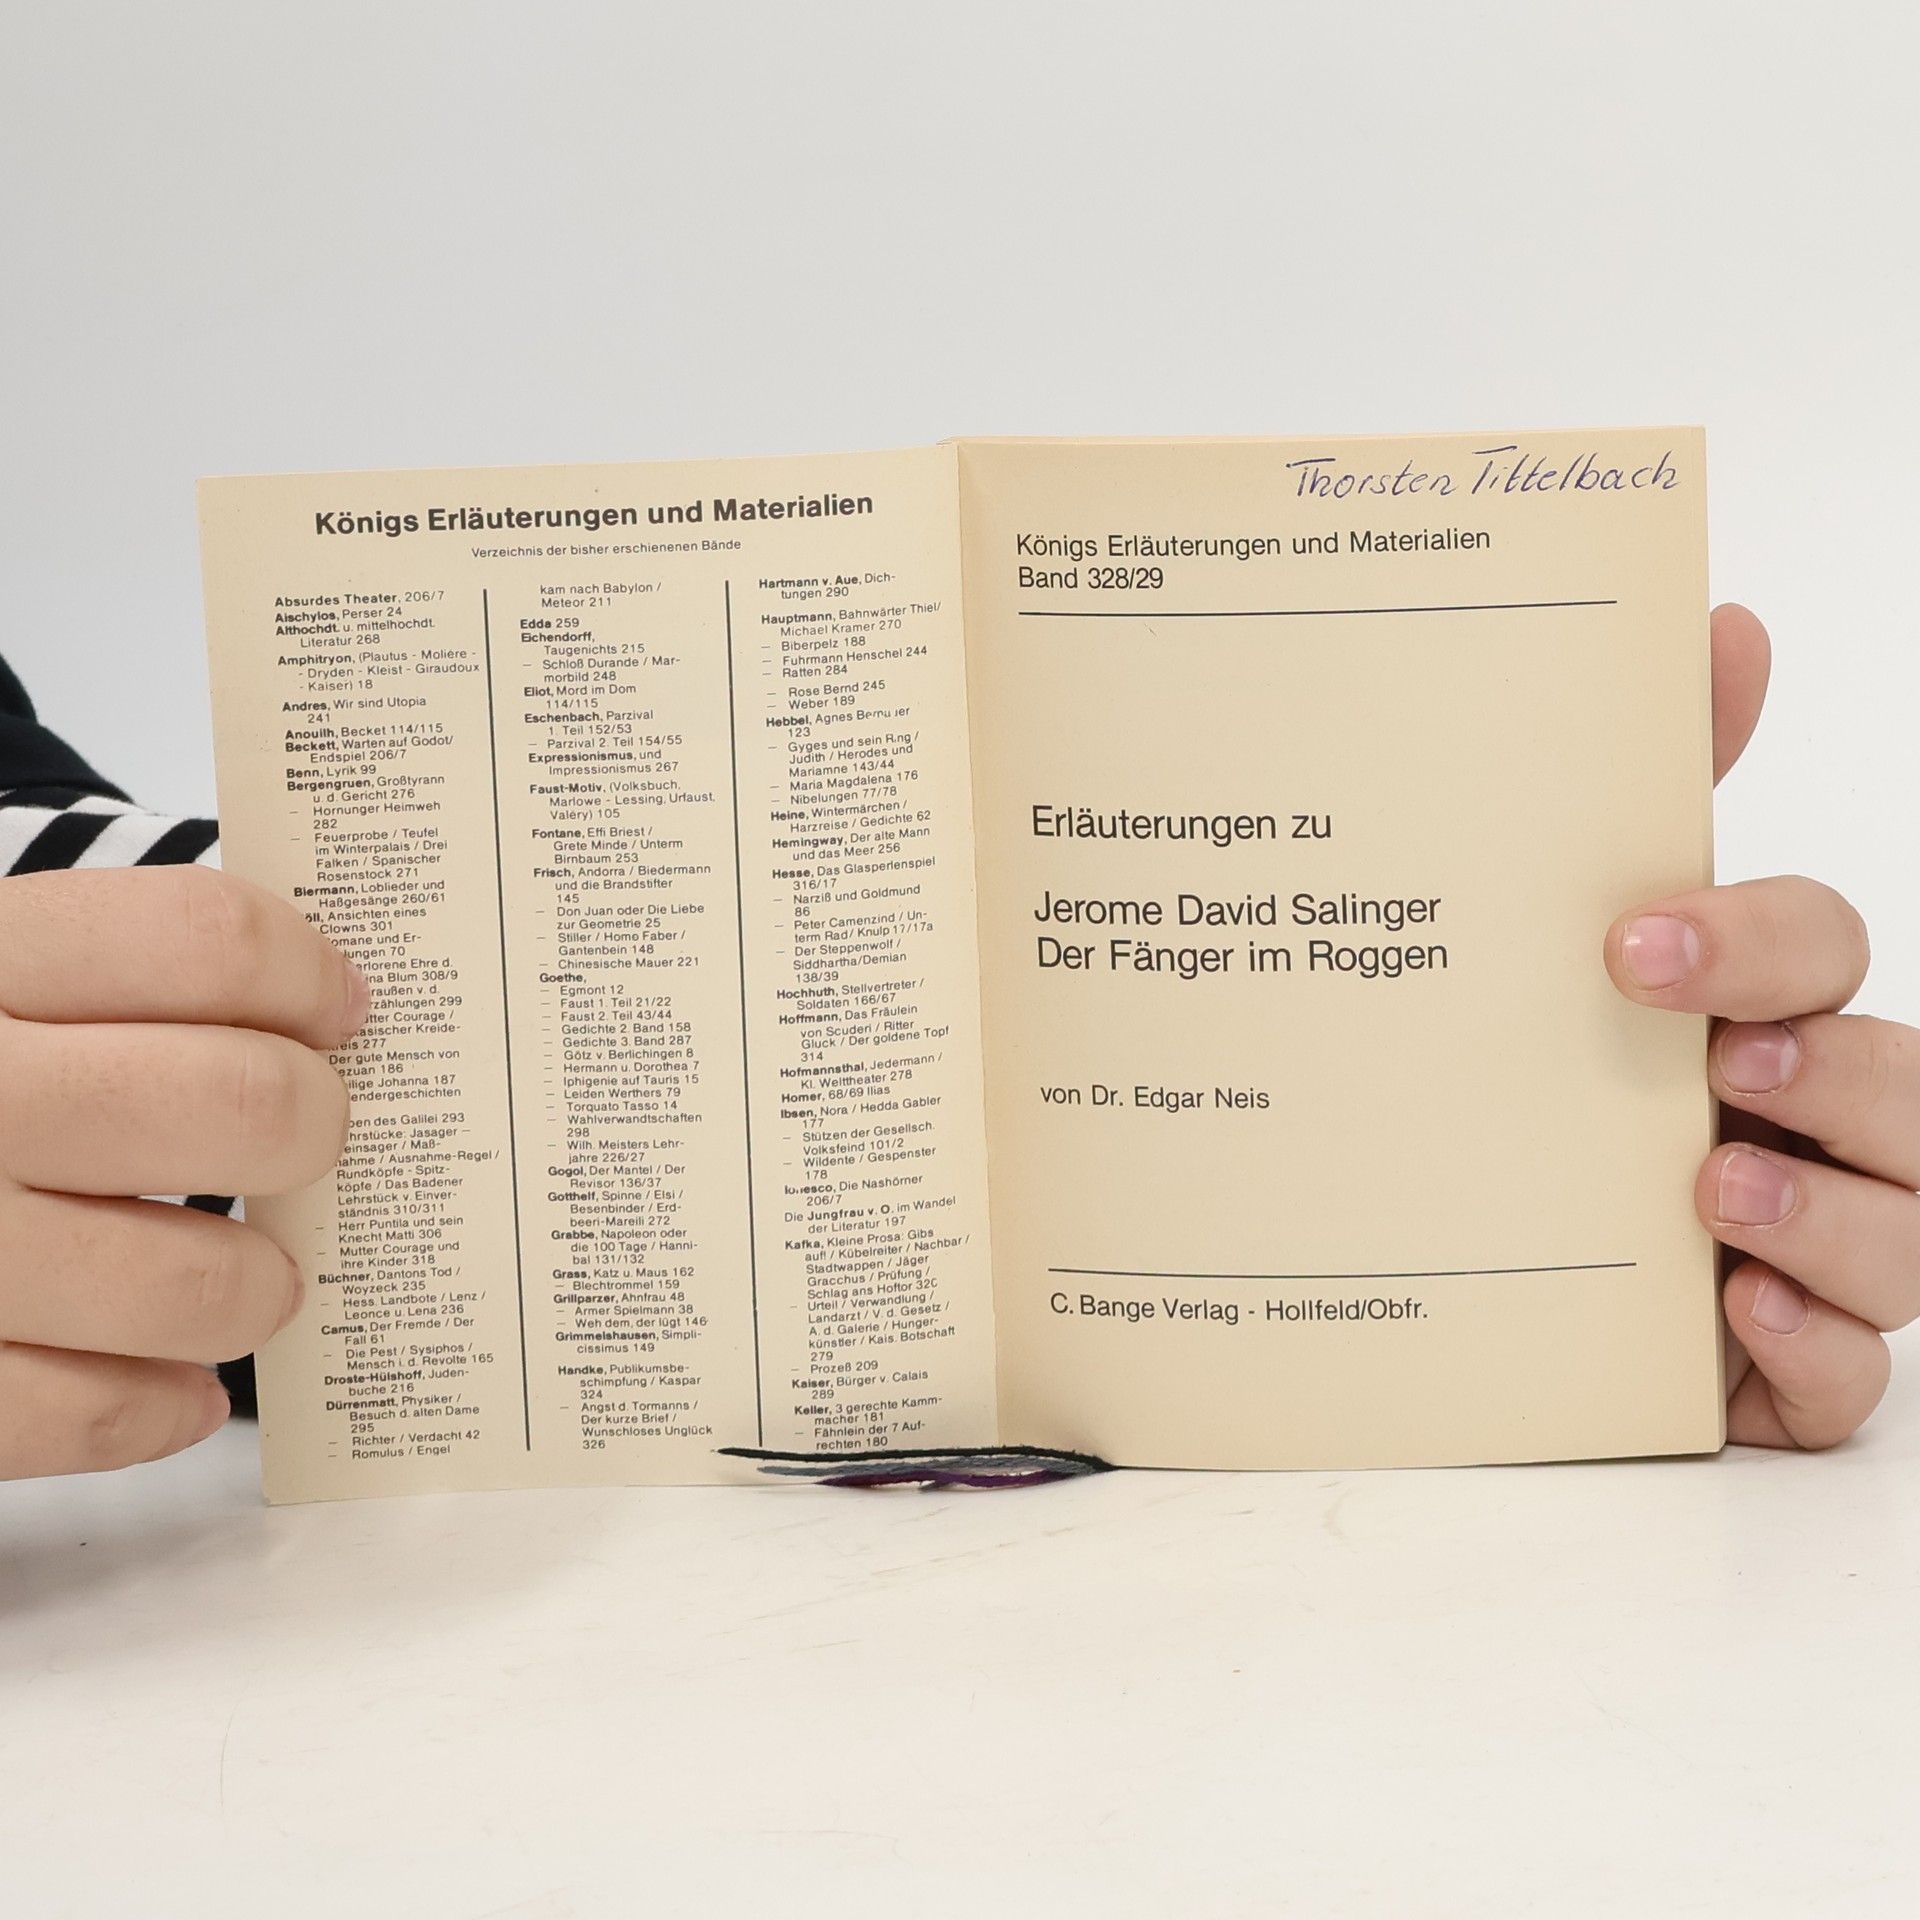 Königs Erläuterungen und Materialien
Verzeichnis der bisher erschienenen Bände
Absurdes Theater, 206/7
Aischylos, Perser 24
Althochdt. u. mittelhochdt.
Literatur 268
Amphitryon, (Plautus - Molière -
- Dryden - Kleist - Giraudoux
- Kaiser) 18
Andres, Wir sind Utopia
241
Anouilh, Becket 114/115
Beckett, Warten auf Godot/
Endspiel 206/7
Benn, Lyrik 99
Bergengruen, Großtyrann
u. d. Gericht 276
– Hornunger Heimweh
282
– Feuerprobe / Teufel
im Winterpalais / Drei
Falken / Spanischer
Rosenstock 271
Biermann, Loblieder und
Haßgesänge 260/61
öll, Ansichten eines
Clowns 301
omane und Er-
lungen 70
erlorene Ehre d.
ina Blum 308/9
raußen v. d.
rzählungen 299
tter Courage /
asischer Kreide-
eis 277
Der gute Mensch von
ezuan 186
eilige Johanna 187
endergeschichten
ben des Galilei 293
hrstücke: Jasager –
einsager / Maß-
nahme / Ausnahme-Regel /
Rundköpfe - Spitz-
köpfe / Das Badener
Lehrstück v. Einver-
ständnis 310/311
– Herr Puntila und sein
Knecht Matti 306
– Mutter Courage und
ihre Kinder 318
Büchner, Dantons Tod /
Woyzeck 235
– Hess. Landbote / Lenz /
Leonce u. Lena 236
Camus, Der Fremde / Der
Fall 61
– Die Pest / Sysiphos /
Mensch i. d. Revolte 165
Droste-Hülshoff, Juden-
buche 216
Dürrenmatt, Physiker /
Besuch d. alten Dame
295
– Richter / Verdacht 42
– Romulus / Engel
kam nach Babylon /
Meteor 211
Edda 259
Eichendorff,
Taugenichts 215
– Schloß Durande / Mar-
morbild 248
Eliot, Mord im Dom
114/115
Eschenbach, Parzival
1. Teil 152/53
– Parzival 2. Teil 154/55
Expressionismus, und
Impressionismus 267
Faust-Motiv, (Volksbuch,
Marlowe - Lessing, Urfaust,
Valéry) 105
Fontane, Effi Briest /
Grete Minde / Unterm
Birnbaum 253
Frisch, Andorra / Biedermann
und die Brandstifter
145
– Don Juan oder Die Liebe
zur Geometrie 25
– Stiller / Homo Faber /
Gantenbein 148
– Chinesische Mauer 221
Goethe,
– Egmont 12
– Faust 1. Teil 21/22
– Faust 2. Teil 43/44
– Gedichte 2. Band 158
– Gedichte 3. Band 287
– Götz v. Berlichingen 8
– Hermann u. Dorothea 7
– Iphigenie auf Tauris 15
– Leiden Werthers 79
– Torquato Tasso 14
– Wahlverwandtschaften
298
– Wilh. Meisters Lehr-
jahre 226/27
Gogol, Der Mantel / Der
Revisor 136/37
Gotthelf, Spinne / Elsi /
Besenbinder / Erd-
beeri-Mareili 272
Grabbe, Napoleon oder
die 100 Tage / Hanni-
bal 131/132
Grass, Katz u. Maus 162
– Blechtrommel 159
Grillparzer, Ahnfrau 48
– Armer Spielmann 38
– Weh dem, der lügt 146
Grimmelshausen, Simpli-
cissimus 149
Handke, Publikumsbe-
schimpfung / Kaspar
324
– Angst d. Tormanns /
Der kurze Brief /
Wunschloses Unglück
326
Hartmann v. Aue, Dich-
tungen 290
Hauptmann, Bahnwärter Thiel/
Michael Kramer 270
– Biberpelz 188
– Fuhrmann Henschel 244
– Ratten 284
– Rose Bernd 245
– Weber 189
Hebbel, Agnes Bernauer
123
– Gyges und sein Ring /
Judith / Herodes und
Mariamne 143/44
– Maria Magdalena 176
– Nibelungen 77/78
Heine, Wintermärchen /
Harzreise / Gedichte 62
Hemingway, Der alte Mann
und das Meer 256
Hesse, Das Glasperlenspiel
316/17
– Narziß und Goldmund
86
– Peter Camenzind / Un-
term Rad/ Knulp 17/17a
– Der Steppenwolf /
Siddhartha/Demian
138/39
Hochhuth, Stellvertreter /
Soldaten 166/67
Hoffmann, Das Fräulein
von Scuderi / Ritter
Gluck / Der goldene Topf
314
Hofmannsthal, Jedermann /
Kl. Welttheater 278
Homer, 68/69 Ilias
Ibsen, Nora / Hedda Gabler
177
– Stützen der Gesellsch.
Volksfeind 101/2
– Wildente / Gespenster
178
Ionesco, Die Nashörner
206/7
Die Jungfrau v. O. im Wandel
der Literatur 197
Kafka, Kleine Prosa: Gibs
auf! / Kübelreiter / Nachbar /
Stadtwappen / Jäger
Gracchus / Prüfung /
Schlag ans Hoftor 320
– Urteil / Verwandlung /
Landarzt / V. d. Gesetz /
A. d. Galerie / Hunger-
künstler / Kais. Botschaft
279
– Prozeß 209
Kaiser, Bürger v. Calais
289
Keller, 3 gerechte Kamm-
macher 181
– Fähnlein der 7 Auf-
rechten 180
Thorsten Tittelbach
Königs Erläuterungen und Materialien
Band 328/29
Erläuterungen zu
Jerome David Salinger
Der Fänger im Roggen
von Dr. Edgar Neis
C. Bange Verlag - Hollfeld/Obfr.